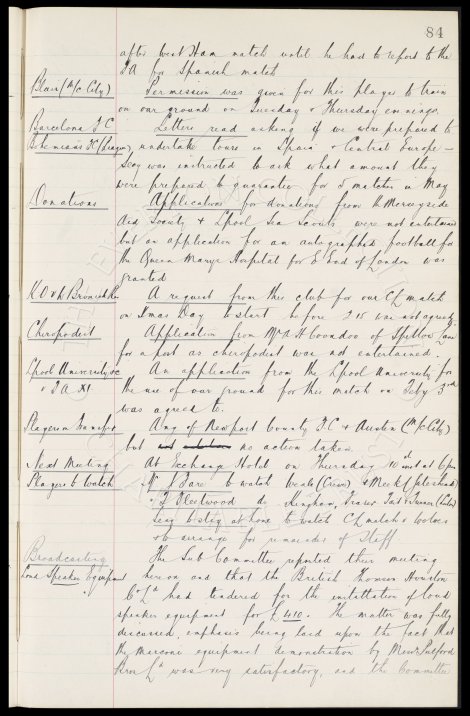 84
after West Ham match until he had to report to the
FA for Spanish match
Blair (M/c City) Permission was given for this player to train
on our ground on Tuesday & Thursday evenings.
Barcelona F C Letters read asking if we were prepared to
Bohemians FC (Prague) undertake tours in Spain & Central Europe –
Secy was instructed to ask what amount they
were prepared to guarantee for 5 matches in May
Donations Applications for donations from the Merseyside
Aid Society & L'pool Sea Scouts were not entertained
but an application for an autographed football for
the Queen Marys Hospital for E End of London was
granted
K O v W Bromwich A request from this club for our CL match
on Xmas Day to start before 2.15 was not agreed.
Chiropodist Application from Mr A H of Spellow Lane
for a post as chiropodist was not entertained.
L'pool University An application from the L'pool University for
v F A XI the use of our ground for this match on Feby 3rd
was agreed to.
Players on Transfer of Newport County F.C & Austin (M/c City)
but no action taken.
Next Meeting At Exchange Hotel on Thursday 10th inst at 6pm
Players to Watch Mr J Sare to watch (Crewe) & Meek (Gateshead)
" F Fleetwood do Kingham, Fraser & Turner (Luton)
Secy to stay at home to watch CL match v Wolves
& to arrange for remainder of Staff
Broadcasting The Sub Committee reported their meeting
Loud Speaker Equipment hereon and that the British Thomson Houston
Co Ld had tendered for the installation of loud
speaker equipment for £410. The matter was fully
discussed, emphasis being laid upon the fact that
the marconi equipment demonstration by Messrs
Bros Ld was very satisfactory, and the Committee